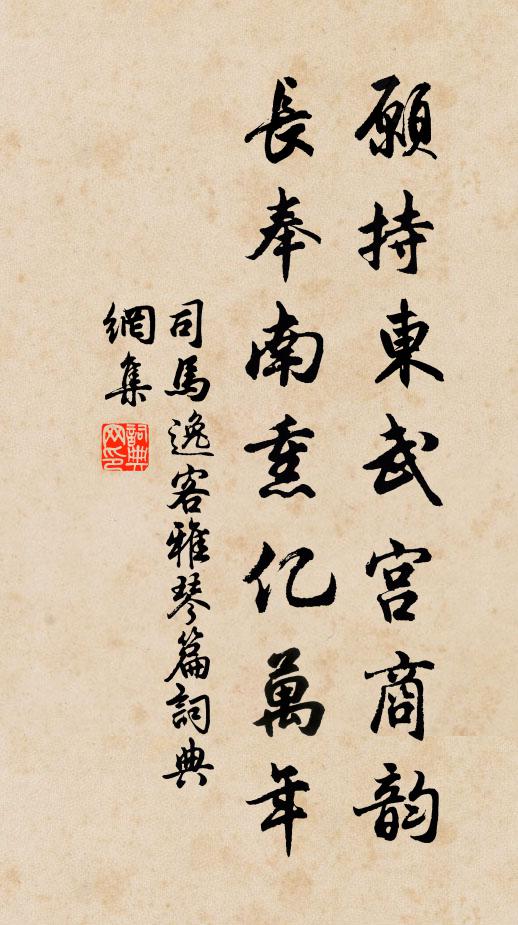 願持東武宮商韵
長奉南熏亿萬年
司馬逸客雅琴篇詞典
網集
詞典
网印